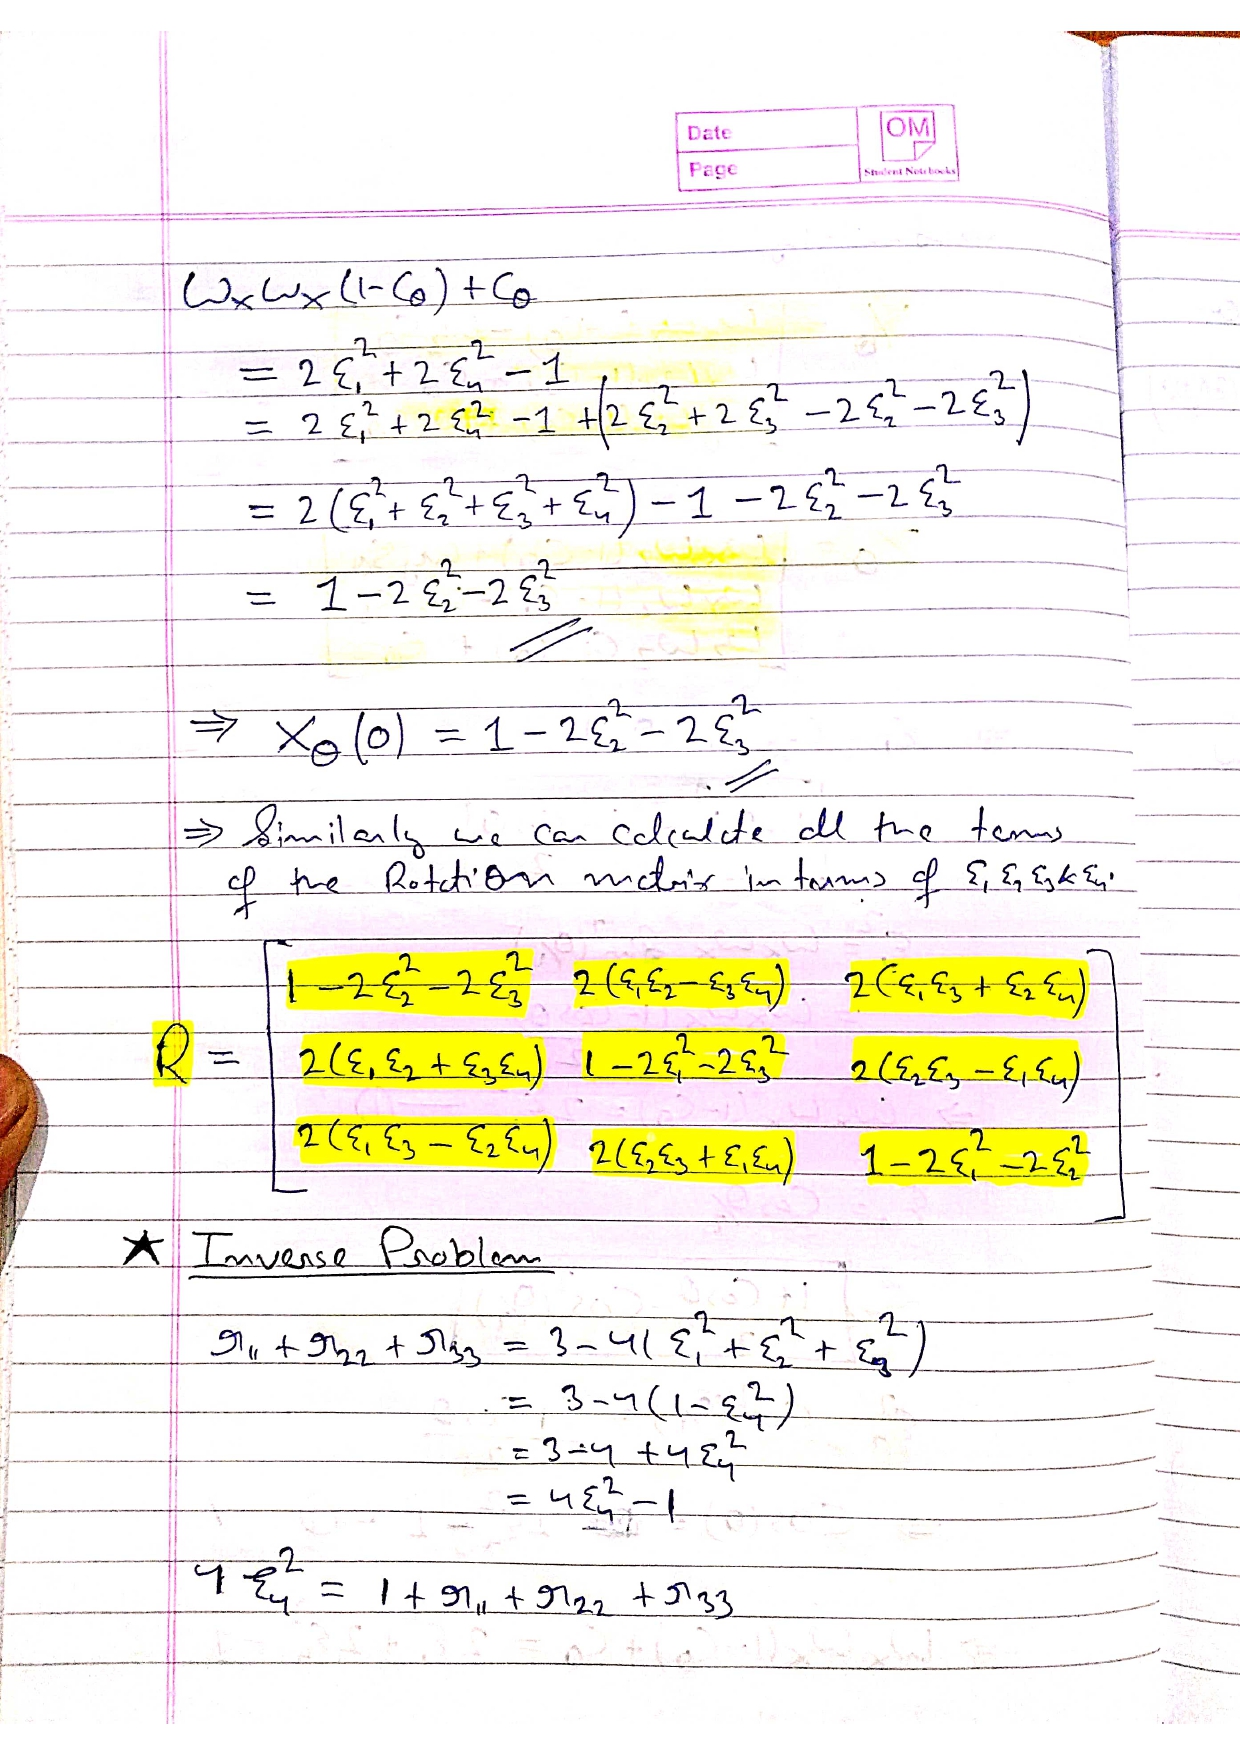 Date
Page
OM
Student Notebooks
ωₓωₓ(1-Cθ)+Cθ
= 2ε₁² + 2ε₄² - 1
= 2ε₁² + 2ε₄² - 1 + (2ε₂² + 2ε₃² - 2ε₂² - 2ε₃²)
= 2(ε₁² + ε₂² + ε₃² + ε₄²) - 1 - 2ε₂² - 2ε₃²
= 1 - 2ε₂² - 2ε₃²
⇒ Xθ(0) = 1 - 2ε₂² - 2ε₃²
⇒ Similarly we can calculate all the terms
of the Rotation matrix in terms of ε₁ ε₂ ε₃ & ε₄.
1 - 2ε₂² - 2ε₃² 2(ε₁ε₂ - ε₃ε₄) 2(ε₁ε₃ + ε₂ε₄)
R = 2(ε₁ε₂ + ε₃ε₄) 1 - 2ε₁² - 2ε₃² 2(ε₂ε₃ - ε₁ε₄)
2(ε₁ε₃ - ε₂ε₄) 2(ε₂ε₃ + ε₁ε₄) 1 - 2ε₁² - 2ε₂²
★ Inverse Problem
r₁₁ + r₂₂ + r₃₃ = 3 - 4(ε₁² + ε₂² + ε₃²)
= 3 - 4(1 - ε₄²)
= 3 - 4 + 4ε₄²
= 4ε₄² - 1
4ε₄² = 1 + r₁₁ + r₂₂ + r₃₃